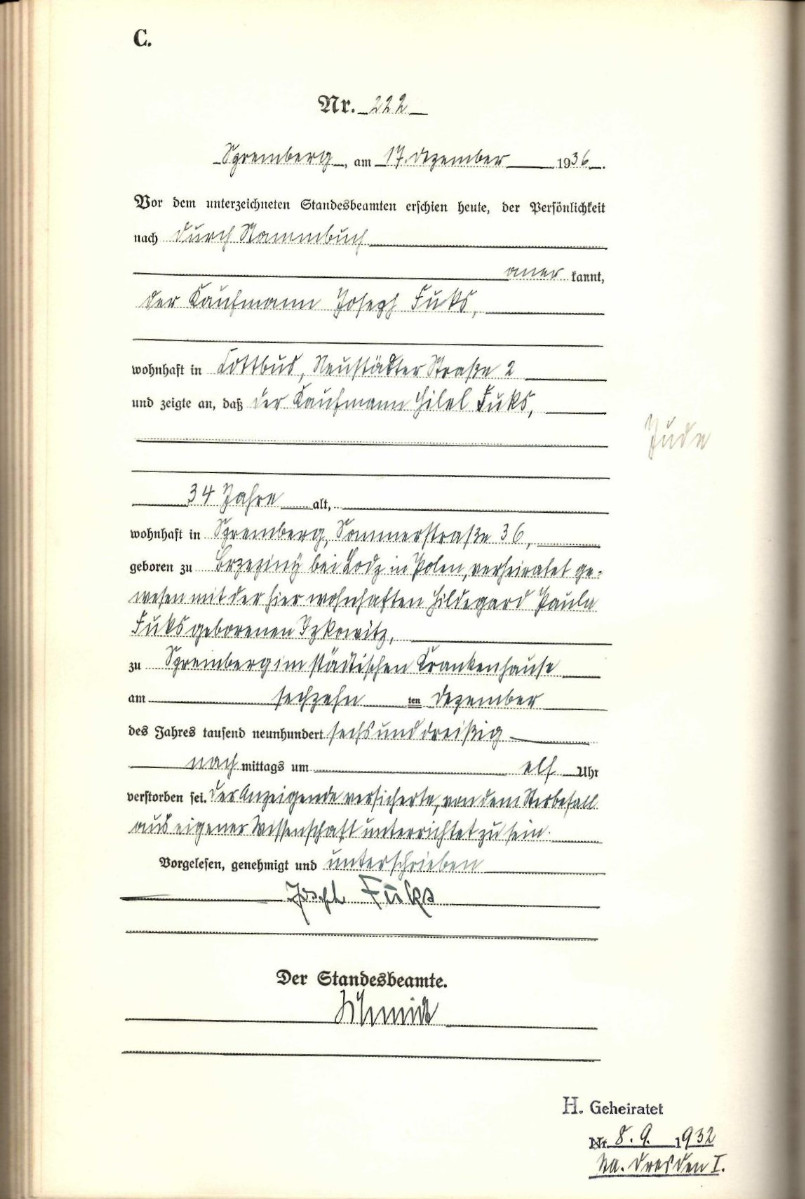 C.
Nr. 222
Spremberg, am 17. Dezember 1936.
Vor dem unterzeichneten Standesbeamten erschien heute, der Persönlichkeit
nach durch Stammbuch
anerkannt,
der Kaufmann Joseph Fuks,
wohnhaft in Cottbus, Neustädter Straße 2
und zeigte an, daß der Kaufmann Hilel Fuks,
Jude
34 Jahre alt,
wohnhaft in Spremberg, Sommerstraße 36,
geboren zu Brzeziny bei Lodz in Polen, verheiratet ge-
wesen mit der hier wohnhaften Hildegard Paula
Fuks geborenen Izkowitz,
zu Spremberg im städtischen Krankenhause
am sechzehn ten Dezember
des Jahres tausend neunhundert sechs und dreißig
nach mittags um elf Uhr
verstorben sei. Der Anzeigende versicherte, von dem Sterbefall
aus eigener Wissenschaft unterrichtet zu sein.
Vorgelesen, genehmigt und unterschrieben
Joseph Fuks
Der Standesbeamte.
Schmidt
H. Geheiratet
Nr. 8. 9. 1932
StA. Dresden I.